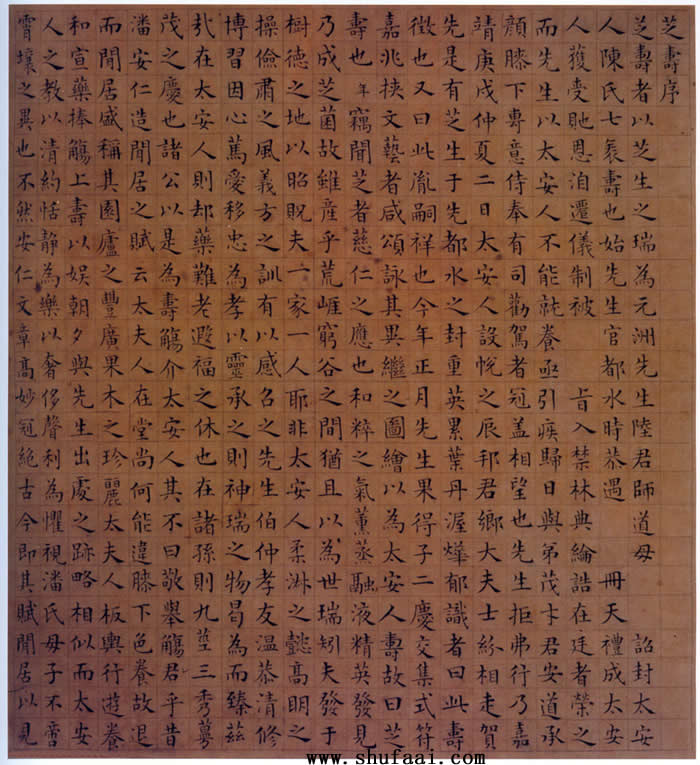 芝壽序
芝壽者以芝生之瑞為元洲先生陸君師道母 詔封太安
人陳氏七袠壽也始先生官都水時恭遇 冊天禮成太安
人獲受貤恩洎遷儀制被 旨入禁林典綸誥在廷者榮之
而先生以太安人不能就養亟引疾歸日與弟茂卞君安道承
顏膝下專意侍奉有司勸駕者冠盖相望也先生拒弗行乃嘉
靖庚戌仲夏二日太安人設帨之辰邦君鄉大夫士紛相走賀
先是有芝生于先都水之封重英累葉丹渥燁郁識者曰此壽
徵也又曰此胤嗣祥也今年正月先生果得子二慶交集式符
嘉兆挟文藝者咸頌詠其異繼之圖繪以為太安人壽故曰芝
壽也年竊聞芝者慈仁之應也和粹之氣薰蒸融液精英發見
乃成芝菌故雖産乎荒崕窮谷之間猶且以為世瑞矧夫發于
樹德之地以昭貺夫一家一人耶非太安人柔淋之懿高明之
操儉肅之風義方之訓有以感召之先生伯仲孝友温恭清修
博習因心篤愛移忠為孝以靈承之則神瑞之物曷為而臻茲
㢤在太安人則却藥難老遐福之休也在諸孫則九莖三秀蕚
茂之慶也諸公以是為壽觴介太安人其不曰敬舉觴君乎昔
潘安仁造閒居之賦云太夫人在堂尚何能違膝下色養故退
而閒居盛稱其園廬之豐廣果木之珍麗太夫人板輿行遊養
和宣藥捧觴上壽以娱朝夕與先生出處之跡略相似而太安
人之教以清約恬静為樂以奢侈聲利為懼視潘氏母子不啻
霄壤之異也不然安仁文章髙妙冠絶古今即其賦閒居以見
www.shufaai.com